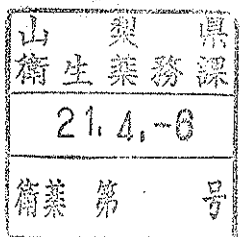 山梨県
衛生薬務課
21.4.-6
衛薬第 号